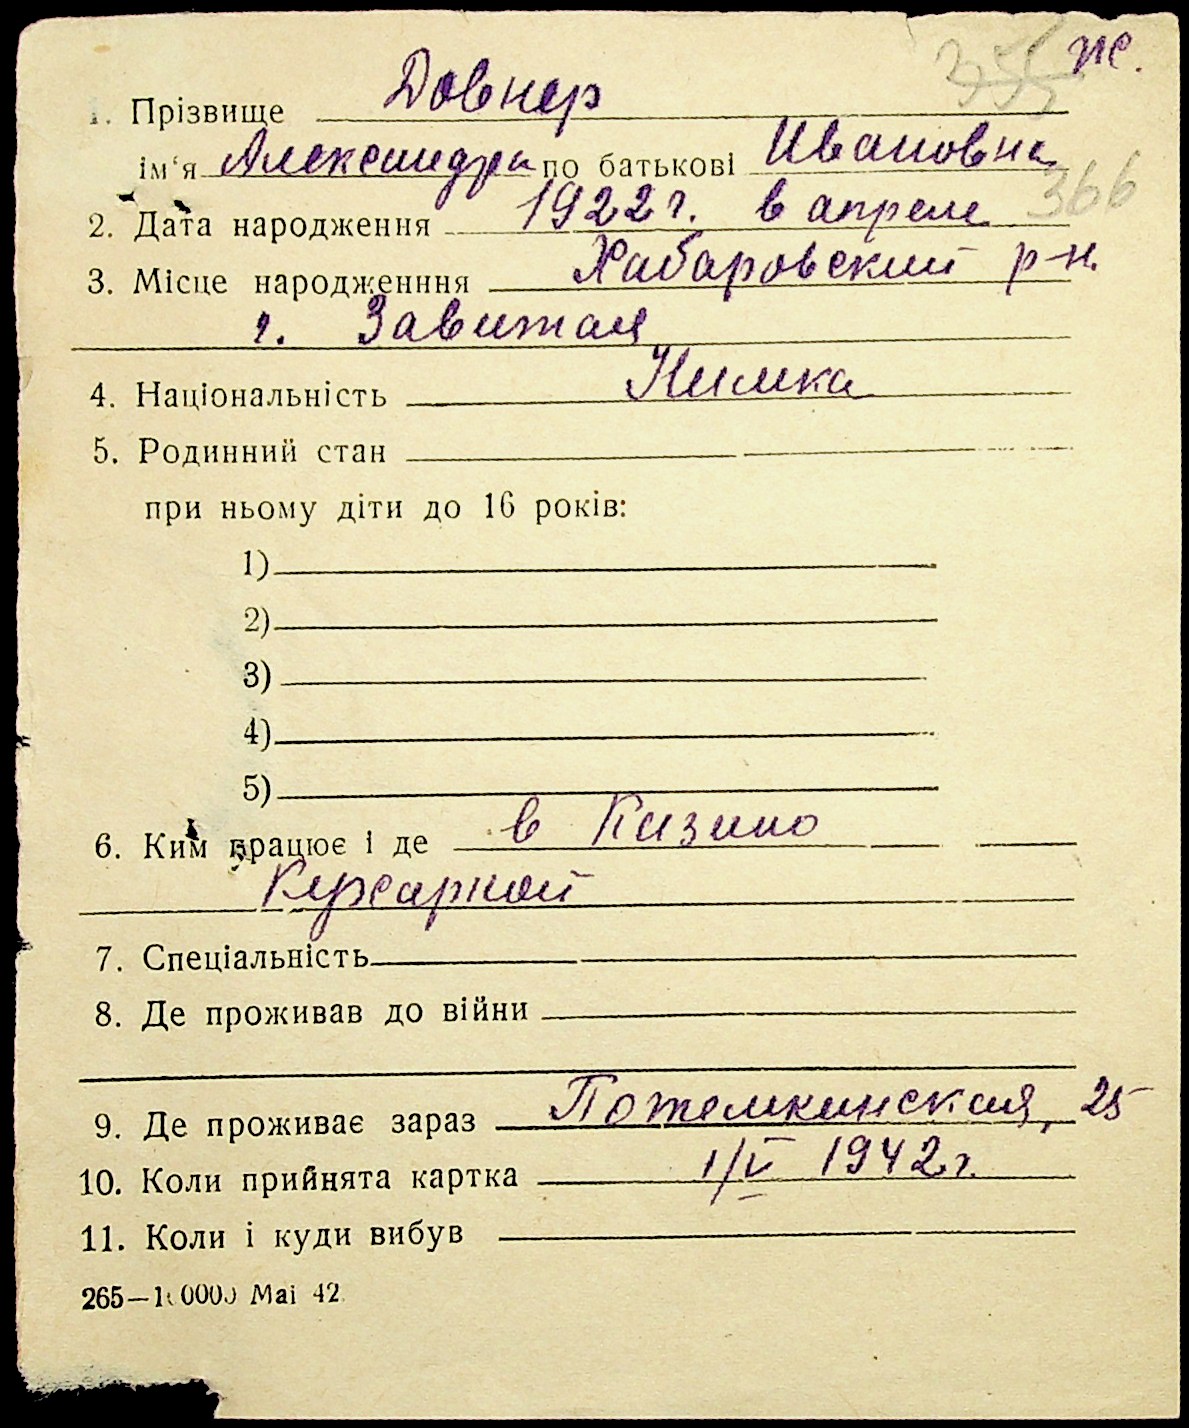 355 ж.
1. Прізвище Довнер
ім‘я Александра по батькові Ивановна
366
2. Дата народження 1922 г. в апреле
3. Місце народженння Хабаровский р-н.
г. Завитая
4. Національність Нимка
5. Родинний стан
при ньому діти до 16 років:
1)
2)
3)
4)
5)
6. Ким працює і де в Казино
Кухаркой
7. Спеціальність
8. Де проживав до війни
9. Де проживає зараз Потемкинская, 25
10. Коли прийнята картка 1/V 1942 г.
11. Коли і куди вибув
265—10000 Маі 42